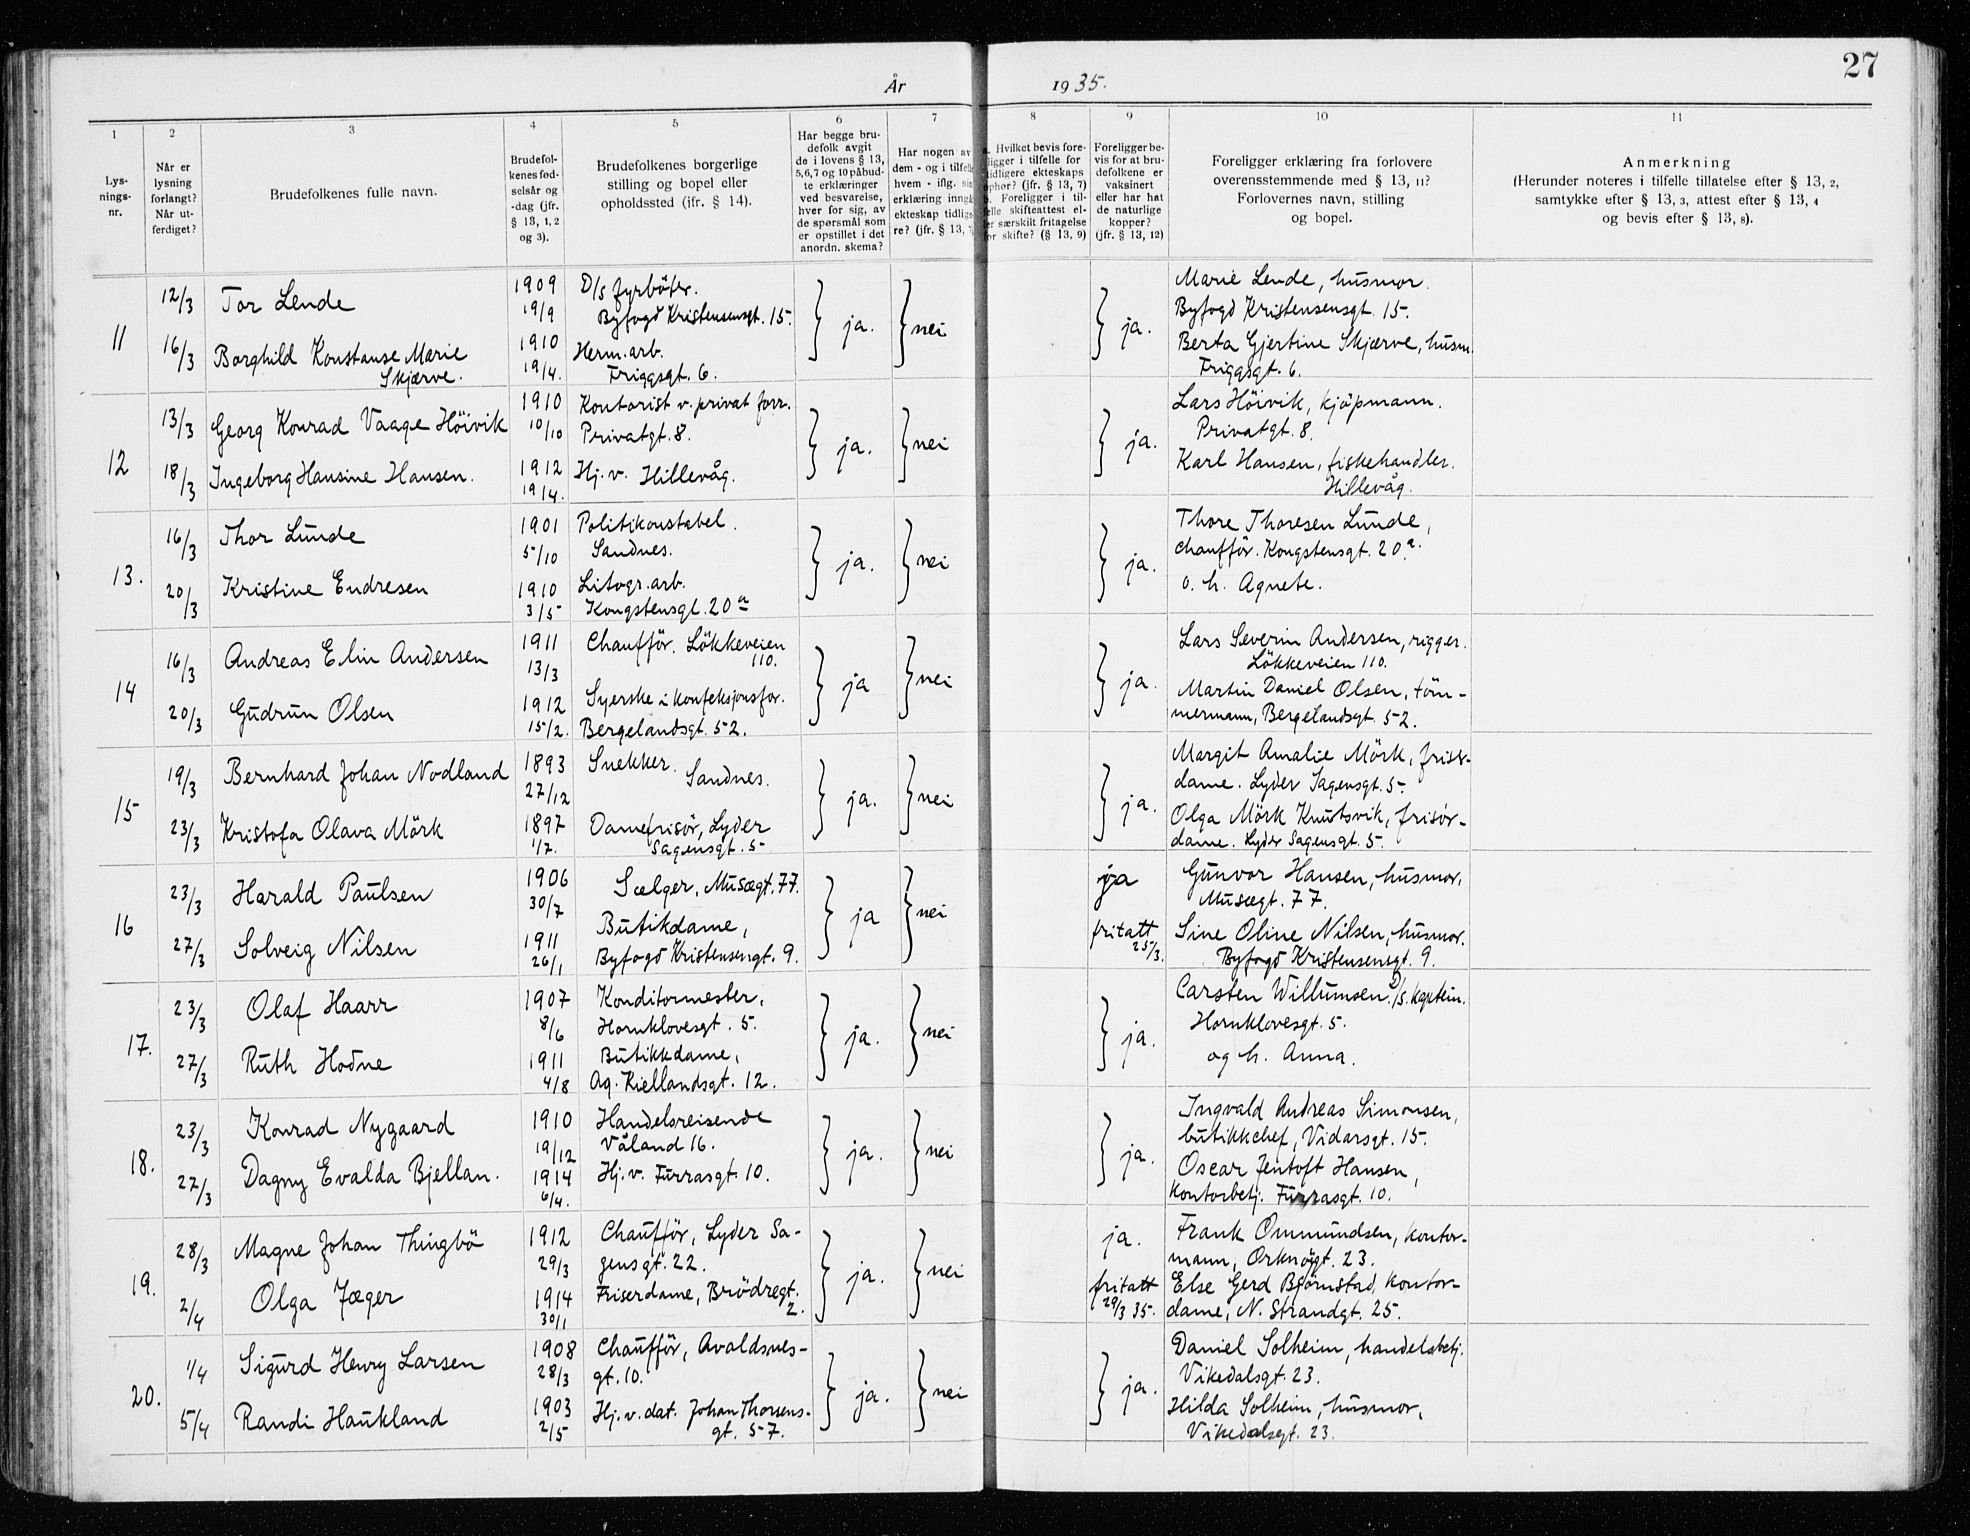 27
År 1935.
1 2 3 4 5 6 7 8 9 10 11
Lys-
nings-
nr.
Når er
lysning
forlangt?
Når ut-
ferdiget?
Brudefolkenes fulle navn.
Brudefol-
kenes fød-
selsår og
-dag (jfr.
§ 13, 1, 2
og 3).
Brudefolkenes borgerlige
stilling og bopel eller
opholdssted (jfr. § 14).
Har begge bru-
defolk avgit
de i lovens § 13,
5,6,7 og 10 påbud-
te erklæringer
ved besvarelse,
hver for sig, av
de spørsmål som
er opstillet i det
anordn. skema?
Har nogen av
dem - og i tilfelle
hvem - iflg.
erklæring inngå
ekteskap tidlige-
re? (jfr. § 13,
Hvilket bevis fore-
ligger i tilfelle for
tidligere ekteskaps
ophør? (jfr. § 13, 7)
Foreligger i til-
felle skifteattest el-
er særskilt fritagelse
for skifte? (§ 13, 9)
Foreligger be-
vis for at bru-
defolkene er
vaksinert
eller har hat
de naturlige
kopper?
(jfr. § 13, 12)
Foreligger erklæring fra forlovere
overensstemmende med § 13, 11?
Forlovernes navn, stilling
og bopel.
Anmerkning
(Herunder noteres i tilfelle tillatelse efter § 13, 2,
samtykke efter § 13, 3, attest efter § 13, 4
og bevis efter § 13, 8).
11
12/3 Tor Lende 1909 19/9 D/s fyrbøter.
Byfogd Kristensensgt. 15.
16/3 Borghild Konstanse Marie
Skjærve. 1910 19/4. Herm. arb.
Friggsgt. 6.
ja. nei ja.
Marie Lende, husmor.
Byfogd Kristensensgt. 15.
Berta Gjertine Skjærve, husm.
Friggsgt. 6.
12
13/3 Georg Konrad Vaage Höivik 1910 10/10 Kontorist v. privat forr.
Privatgt. 8.
18/3 Ingeborg Hansine Hansen. 1912 19/4. Hj. v. Hillevåg.
ja. nei ja.
Lars Höivik, kjöpmann.
Privatgt. 8.
Karl Hansen, fiskehandler.
Hillevåg.
13.
16/3 Thor Lunde 1901 5/10 Politikonstabel.
Sandnes.
20/3 Kristine Endresen 1910 3/5 Litogr. arb.
Kongstensgt. 20a
ja. nei ja.
Thore Thoresen Lunde,
chaufför. Kongstensgt. 20a.
o. h. Agnete.
14
16/3 Andreas Elin Andersen 1911 13/3 Chaufför. Lökkeveien
110.
20/3 Gudrun Olsen 1912 15/2. Syerske i konfeksjonsfor.
Bergelandsgt. 52.
ja nei ja.
Lars Severin Andersen, rigger.
Lökkeveien 110.
Martin Daniel Olsen, töm-
mermann, Bergelandsgt. 52.
15
19/3 Bernhard Johan Nodland 1893 27/12 Snekker.
Sandnes.
23/3 Kristofa Olava Mörk 1897 1/7. Damefrisör, Lyder
Sagensgt. 5
ja. nei ja.
Margit Amalie Mörk, frisör-
dame. Lyder Sagensgt. 5.
Olga Mörk Knutsvik, frisör-
dame. Lyder Sagensgt. 5.
16
23/3 Harald Paulsen 1906 30/7 Sælger, Muségt. 77.
27/3 Solveig Nilsen 1911 26/1 Butikdame,
Byfogd Kristensengt. 9.
ja nei
ja
fritatt
25/3.
Gunvor Hansen, husmor,
Muségt. 77.
Sine Oline Nilsen, husmor.
Byfogd Kristensensgt. 9.
17.
23/3 Olaf Haarr 1907 8/6 Konditormester,
Hornklovesgt. 5.
27/3 Ruth Hodne 1911 4/8 Butikkdame,
Ag. Kiellandsgt. 12.
ja. nei ja.
Carsten Willumsen, D/s. kaptein.
Hornklovesgt. 5.
og h. Anna.
18.
23/3 Konrad Nygaard 1910 19/12 Handelsreisende
Våland 16.
27/3 Dagny Evalda Bjellan. 1914 6/4. Hj. v. Furrasgt. 10.
ja. nei ja.
Ingvald Andreas Simonsen,
butikkchef, Vidarsgt. 15.
Oscar Jentoft Hansen,
kontorbetj. Furrasgt. 10.
19.
28/3 Magne Johan Thingbö 1912 29/3 Chaufför, Lyder Sa-
gensgt. 22.
2/4 Olga Jæger 1914 30/1 Friserdame, Brödregt.
2.
ja. nei
ja.
fritatt
29/3 35.
Frank Ommundsen, kontor-
mann, Orknöygt. 23.
Else Gerd Bjørnstad, kontor-
dame, N. Strandgt. 25.
20.
1/4 Sigurd Henry Larsen 1908 28/3 Chaufför, Avaldsnes-
gt. 10.
5/4 Randi Haukland 1903 2/5 Hj. v. dat. Johan Thorsens-
gt. 57.
ja. nei ja.
Daniel Solheim, handelsbetj.
Vikedalsgt. 23.
Hilda Solheim, husmor,
Vikedalsgt. 23.